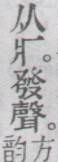 从爿。發聲。
方
韵